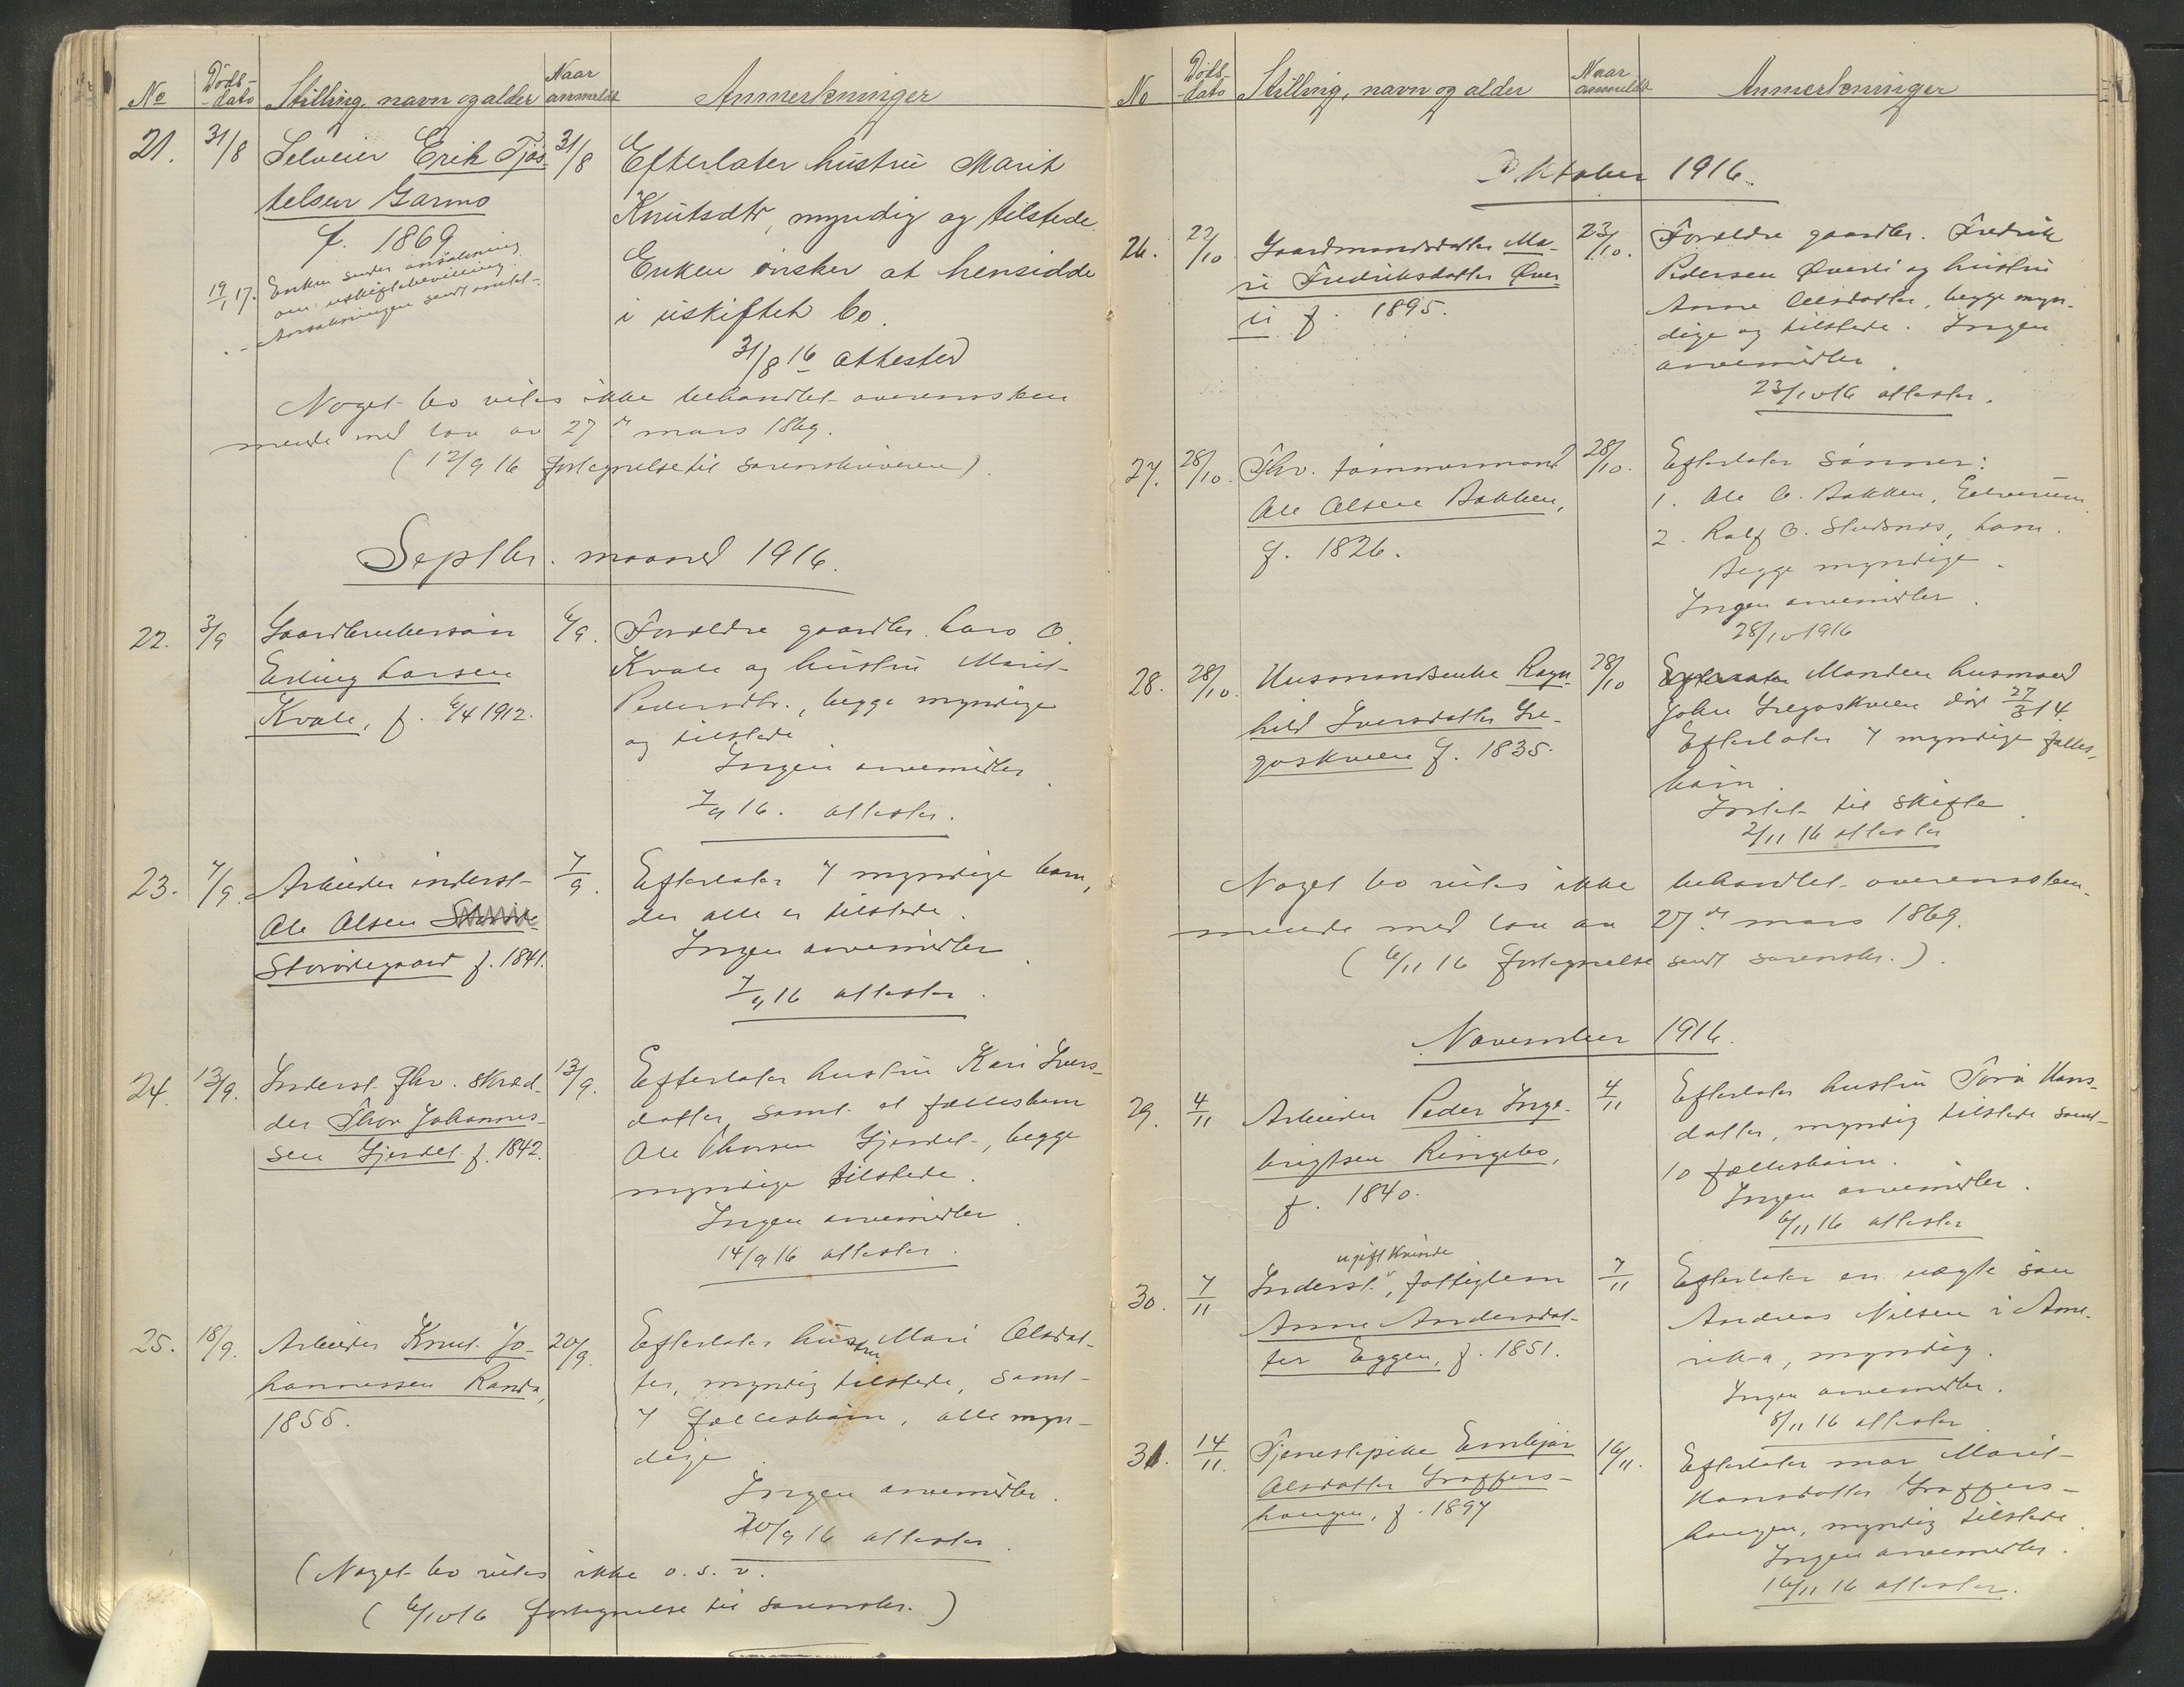 No Døds-dato Stilling, navn og alder Naar anmeldt Anmerkninger
21. 31/8 Selveier Erik Tjøs- 31/8 Efterlater hustru Marit
telsen Garmo Knutsdtr, myndig og tilstede.
f. 1869 Enken ønsker at hensidde
19/1 17. Enken sender ansøkning i uskiftet bo.
om uskiftebevilling.
Ansøkningen sendt amtet.
31/8 16 attester
Noget bo vites ikke behandlet overensstem
mende med lov av 27de mars 1869.
(12/9 16 fortegnelse til sorenskriveren).
Septbr. maaned 1916.
22. 3/9 Gaardbrukersøn 6/9. Forældre gaardbr. Lars O.
Erling Larsen Kvale og hustru Marit
Kvale, f. 6/4 1912. Pedersdtr., begge myndige
og tilstede
Ingen arvemidler.
7/9 16. attester.
23. 7/9. Arbeider inderst 7/9. Efterlater 7 myndige barn,
Ole Olsen der alle er tilstede.
Storødegaard f. 1841. Ingen arvemidler.
7/9 16 attester.
24. 13/9. Inderst fhv. skræd- 13/9. Efterlater hustru Kari Ivers-
der Thor Johannes- datter samt et fællesbarn
sen Gjerdet f. 1842. Ole Thorsen Gjerdet, begge
myndige tilstede.
Ingen arvemidler.
14/9 16 attester.
25. 18/9. Arbeider Knut Jo- 20/9. Efterlater hustru Mari Olsdat-
hannessen Randa, ter, myndig tilstede, samt
1855. 7 fællesbarn, alle myn-
dige.
Ingen arvemidler.
20/9 16 attester.
(Noget bo vites ikke o. s. v.
(6/10 16 fortegnelse til sorenskr.)
No Døds-dato Stilling, navn og alder Naar anmeldt Anmerkninger
Oktober 1916.
26. 22/10 Gaardmandsdatter Ma- 23/10. Forældre gaardbr. Fredrik
ri Fredriksdatter Øver- Pedersen Øverli og hustru
li f. 1895. Anne Olsdatter, begge myn-
dige og tilstede. Ingen
arvemidler.
23/10 16 attester.
27. 28/10. Fhv. tømmermand 28/10. Efterlater sønner:
Ole Olsen Bakken, 1. Ole O. Bakken, Elverum
f. 1826. 2. Rolf O. Studsnes, Lom.
Begge myndige.
Ingen arvemidler.
28/10 1916
28. 28/10. Husmandsenke Ragn- 28/10 Efterlater Manden husmand
hild Iversdatter Gre- John Gregoskveen død 27/3 14.
goskveen f. 1835. Efterlater 7 myndige fælles-
barn.
Intet til skifte.
2/11 16 attester
Noget bo vites ikke behandlet overensstem-
mende med lov av 27de mars 1869.
(6/11 16 fortegnelse sendt sorenskr.).
November 1916.
29. 4/11 Arbeider Peder Inge- 4/11 Efterlater hustru Tora Hans-
brigtsen Ringebo, datter, myndig tilstede samt
f. 1840. 10 fællesbarn.
Ingen arvemidler.
6/11 16 attester
ugift kvinde
30. 7/11 Inderst, fattiglem 7/11 Efterlater en uægte søn
Anne Andersdat- Andreas Nilsen i Ame-
ter Eggen, f. 1851. rika, myndig.
Ingen arvemidler.
8/11 16 attester
31. 14/11. Tjenestepike Embjør 16/11. Efterlater mor Marit
Olsdatter Graffers- Hansdatter Graffers-
haugen, f. 1897 haugen, myndig tilstede.
Ingen arvemidler.
16/11 16 attester.